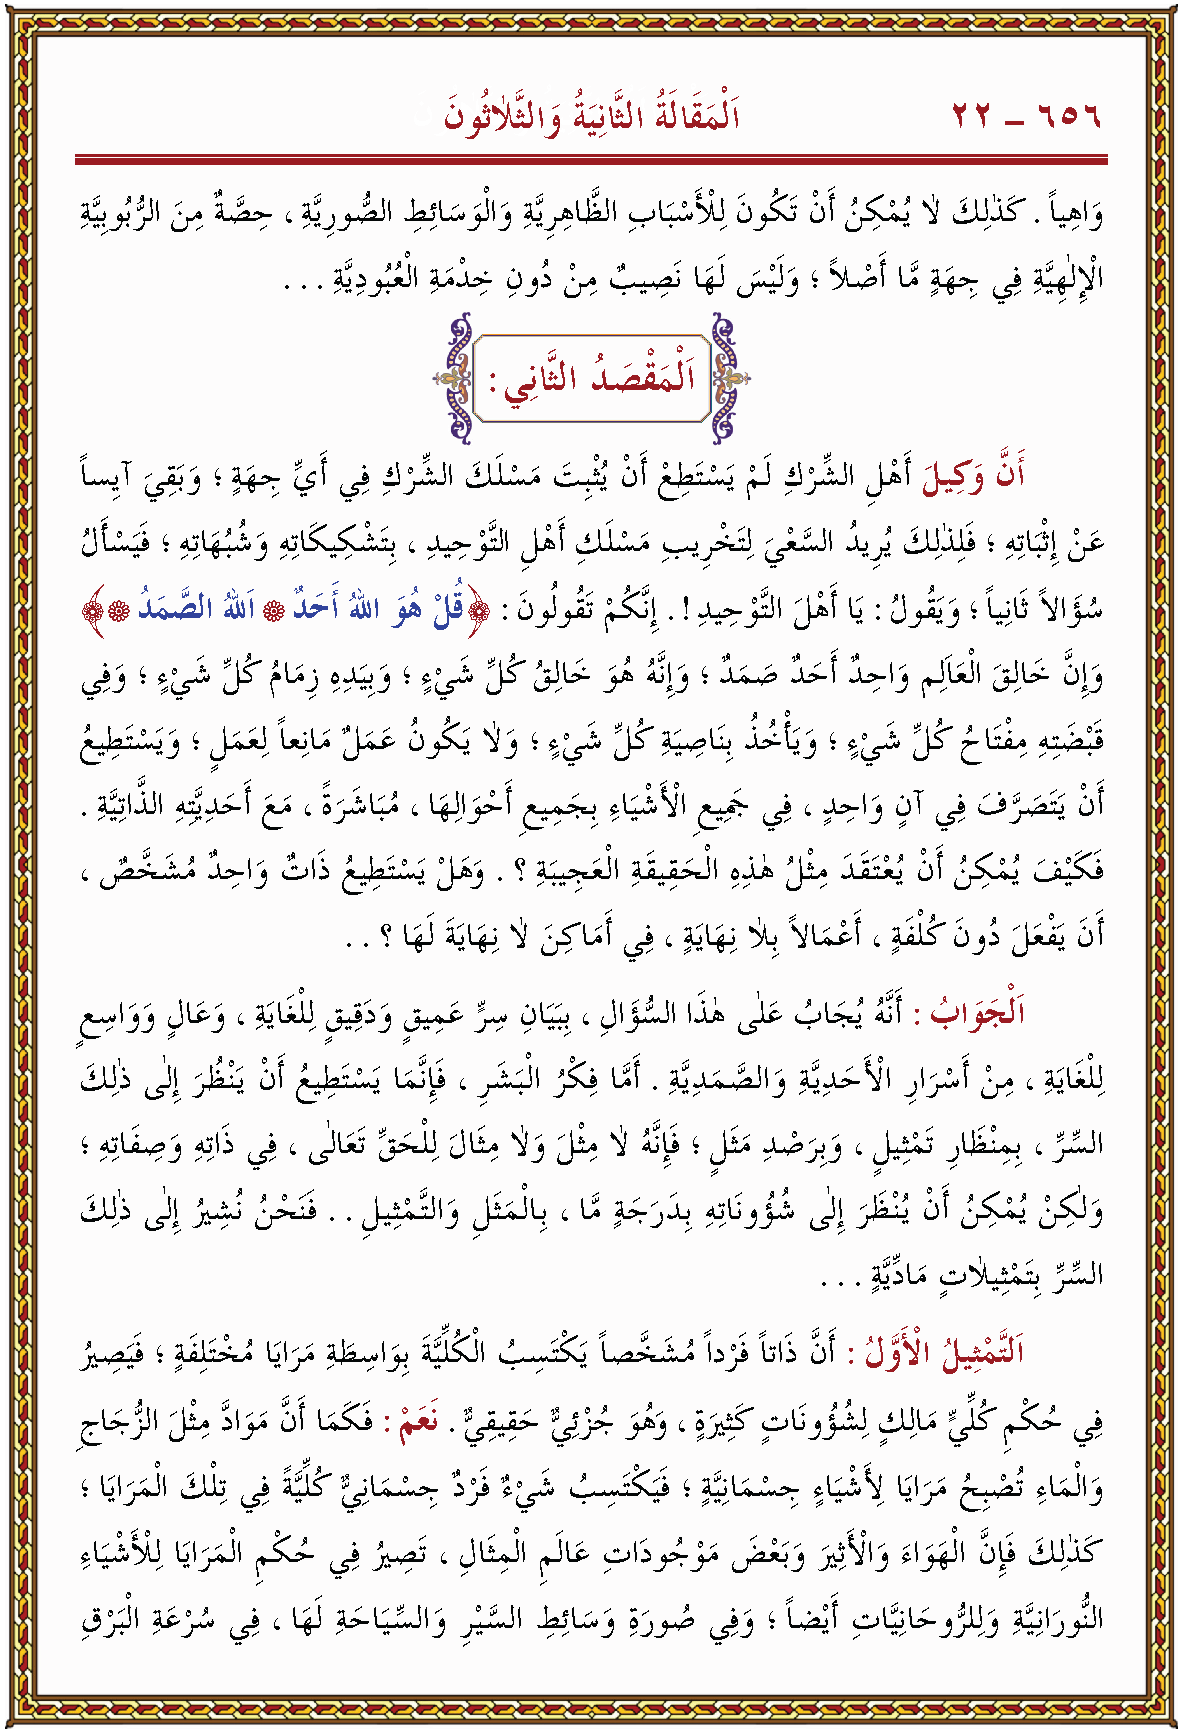 ٦٥٦ ـ ٢٢ اَلْمَقَالَةُ الثَّانِيَةُ وَالثَّلاٰثُونَ
وَاهِياً . كَذٰلِكَ لاٰ يُمْكِنُ أَنْ تَكُونَ لِلْأَسْبَابِ الظَّاهِرِيَّةِ وَالْوَسَائِطِ الصُّورِيَّةِ ، حِصَّةٌ مِنَ الرُّبُوبِيَّةِ
الْإِلٰهِيَّةِ فِي جِهَةٍ مَّا أَصْلاً ؛ وَلَيْسَ لَهَا نَصِيبٌ مِنْ دُونِ خِدْمَةِ الْعُبُودِيَّةِ . . .
اَلْمَقْصَدُ الثَّانِي :
أَنَّ وَكِيلَ أَهْلِ الشِّرْكِ لَمْ يَسْتَطِعْ أَنْ يُثْبِتَ مَسْلَكَ الشِّرْكِ فِي أَيِّ جِهَةٍ ؛ وَبَقِيَ آيِساً
عَنْ إِثْبَاتِهِ ؛ فَلِذٰلِكَ يُرِيدُ السَّعْيَ لِتَخْرِيبِ مَسْلَكِ أَهْلِ التَّوْحِيدِ ، بِتَشْكِيكَاتِهِ وَشُبُهَاتِهِ ؛ فَيَسْأَلُ
سُؤَالاً ثَانِياً ؛ وَيَقُولُ : يَا أَهْلَ التَّوْحِيدِ ! . إِنَّكُمْ تَقُولُونَ : ﴿قُلْ هُوَ اللهُ أَحَدٌ ۞ اَللهُ الصَّمَدُ ۞﴾
وَإِنَّ خَالِقَ الْعَالَمِ وَاحِدٌ أَحَدٌ صَمَدٌ ؛ وَإِنَّهُ هُوَ خَالِقُ كُلِّ شَيْءٍ ؛ وَبِيَدِهِ زِمَامُ كُلِّ شَيْءٍ ؛ وَفِي
قَبْضَتِهِ مِفْتَاحُ كُلِّ شَيْءٍ ؛ وَيَأْخُذُ بِنَاصِيَةِ كُلِّ شَيْءٍ ؛ وَلاٰ يَكُونُ عَمَلٌ مَانِعاً لِعَمَلٍ ؛ وَيَسْتَطِيعُ
أَنْ يَتَصَرَّفَ فِي آنٍ وَاحِدٍ ، فِي جَمِيعِ الْأَشْيَاءِ بِجَمِيعِ أَحْوَالِهَا ، مُبَاشَرَةً ، مَعَ أَحَدِيَّتِهِ الذَّاتِيَّةِ .
فَكَيْفَ يُمْكِنُ أَنْ يُعْتَقَدَ مِثْلُ هٰذِهِ الْحَقِيقَةِ الْعَجِيبَةِ ؟ . وَهَلْ يَسْتَطِيعُ ذَاتٌ وَاحِدٌ مُشَخَّصٌ ،
أَنَ يَفْعَلَ دُونَ كُلْفَةٍ ، أَعْمَالاً بِلاٰ نِهَايَةٍ ، فِي أَمَاكِنَ لاٰ نِهَايَةَ لَهَا ؟ . .
اَلْجَوَابُ : أَنَّهُ يُجَابُ عَلٰى هٰذَا السُّؤَالِ ، بِبَيَانِ سِرٍّ عَمِيقٍ وَدَقِيقٍ لِلْغَايَةِ ، وَعَالٍ وَوَاسِعٍ
لِلْغَايَةِ ، مِنْ أَسْرَارِ الْأَحَدِيَّةِ وَالصَّمَدِيَّةِ . أَمَّا فِكْرُ الْبَشَرِ ، فَإِنَّمَا يَسْتَطِيعُ أَنْ يَنْظُرَ إِلٰى ذٰلِكَ
السِّرِّ ، بِمِنْظَارِ تَمْثِيلٍ ، وَبِرَصْدِ مَثَلٍ ؛ فَإِنَّهُ لاٰ مِثْلَ وَلاٰ مِثَالَ لِلْحَقِّ تَعَالٰى ، فِي ذَاتِهِ وَصِفَاتِهِ ؛
وَلٰكِنْ يُمْكِنُ أَنْ يُنْظَرَ إِلٰى شُؤُونَاتِهِ بِدَرَجَةٍ مَّا ، بِالْمَثَلِ وَالتَّمْثِيلِ . . فَنَحْنُ نُشِيرُ إِلٰى ذٰلِكَ
السِّرِّ بِتَمْثِيلاٰتٍ مَادِّيَّةٍ . . .
اَلتَّمْثِيلُ الْأَوَّلُ : أَنَّ ذَاتاً فَرْداً مُشَخَّصاً يَكْتَسِبُ الْكُلِّيَّةَ بِوَاسِطَةِ مَرَايَا مُخْتَلِفَةٍ ؛ فَيَصِيرُ
فِي حُكْمِ كُلِّيٍّ مَالِكٍ لِشُؤُونَاتٍ كَثِيرَةٍ ، وَهُوَ جُزْئِيٌّ حَقِيقِيٌّ . نَعَمْ : فَكَمَا أَنَّ مَوَادَّ مِثْلَ الزُّجَاجِ
وَالْمَاءِ تُصْبِحُ مَرَايَا لِأَشْيَاءٍ جِسْمَانِيَّةٍ ؛ فَيَكْتَسِبُ شَيْءٌ فَرْدٌ جِسْمَانِيٌّ كُلِّيَّةً فِي تِلْكَ الْمَرَايَا ؛
كَذٰلِكَ فَإِنَّ الْهَوَاءَ وَالْأَثِيرَ وَبَعْضَ مَوْجُودَاتِ عَالَمِ الْمِثَالِ ، تَصِيرُ فِي حُكْمِ الْمَرَايَا لِلْأَشْيَاءِ
النُّورَانِيَّةِ وَلِلرُّوحَانِيَّاتِ أَيْضاً ؛ وَفِي صُورَةِ وَسَائِطِ السَّيْرِ وَالسِّيَاحَةِ لَهَا ، فِي سُرْعَةِ الْبَرْقِ